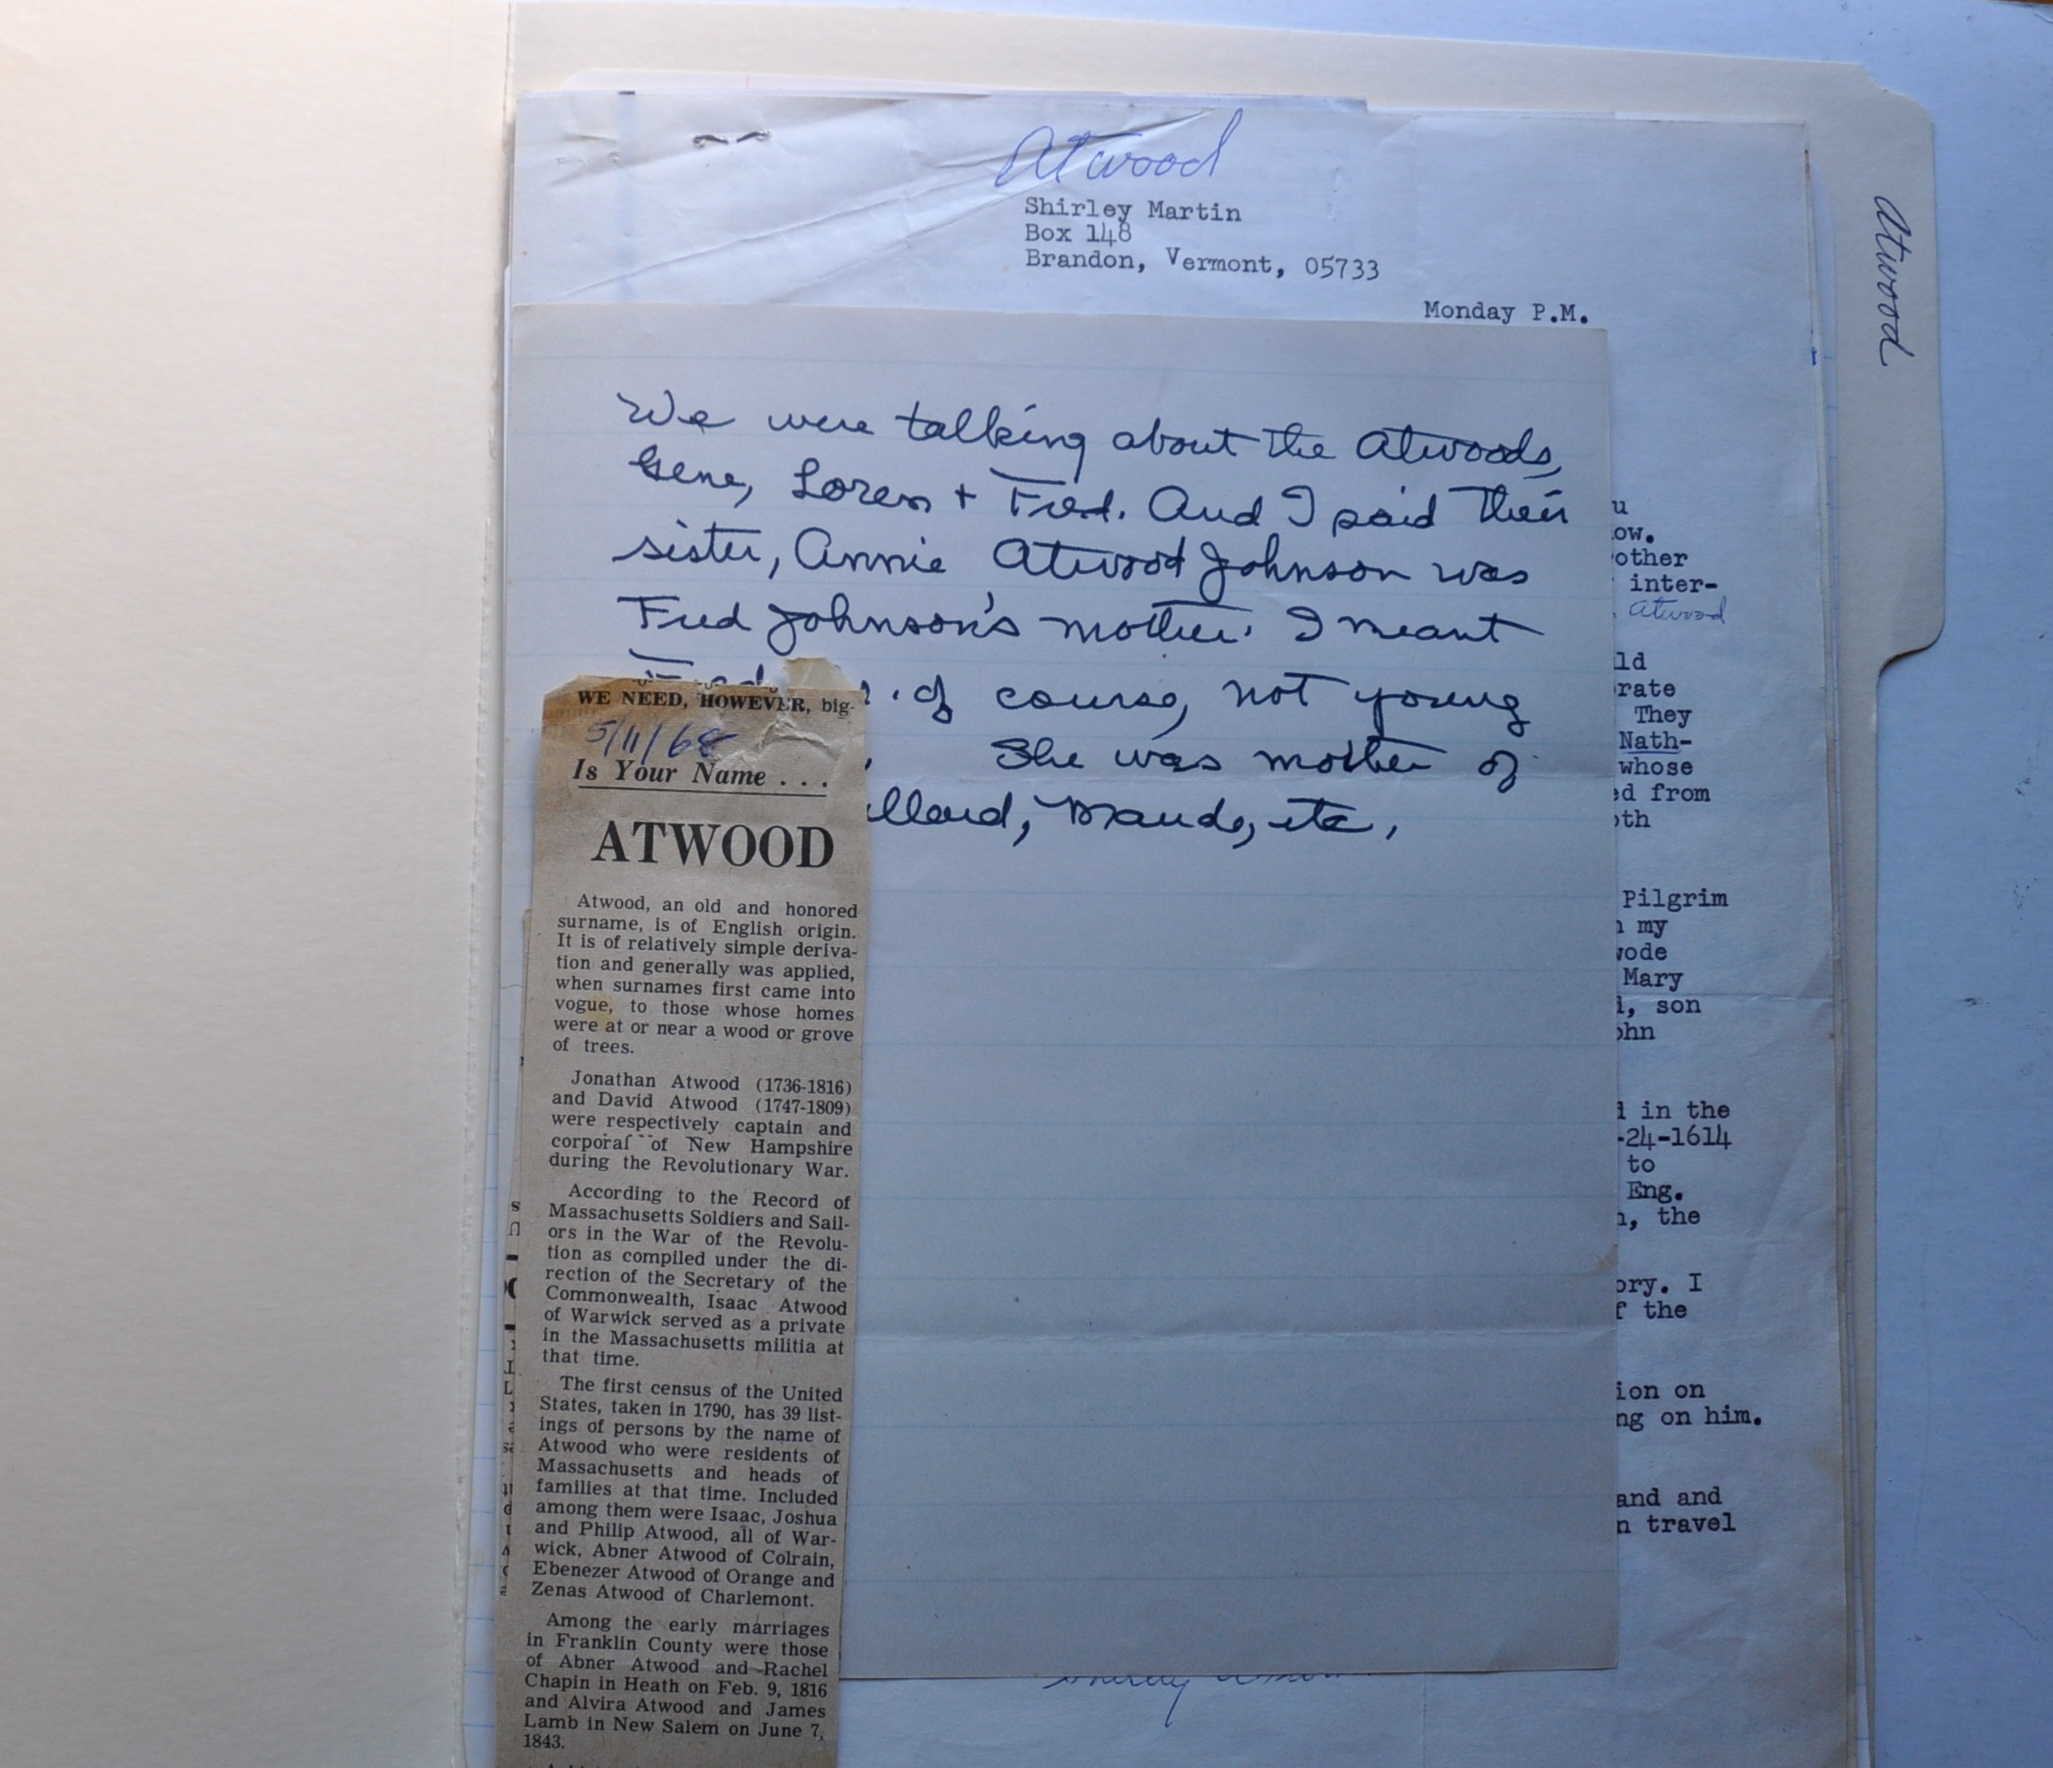 Atwood
Shirley Martin
Box 148
Brandon, Vermont, 05733
Monday P.M.
Atwood
We were talking about the Atwoods,
Gene, Loren + Fred. And I said their
sister, Annie Atwood Johnson was
Fred Johnson's mother. I meant
of course, not young
She was mother of
Maude, etc.
WE NEED, HOWEVER, big-
5/11/68
Is Your Name . . .
ATWOOD
Atwood, an old and honored
surname, is of English origin.
It is of relatively simple deriva-
tion and generally was applied,
when surnames first came into
vogue, to those whose homes
were at or near a wood or grove
of trees.
Jonathan Atwood (1736-1816)
and David Atwood (1747-1809)
were respectively captain and
corporal of New Hampshire
during the Revolutionary War.
According to the Record of
Massachusetts Soldiers and Sail-
ors in the War of the Revolu-
tion as compiled under the di-
rection of the Secretary of the
Commonwealth, Isaac Atwood
of Warwick served as a private
in the Massachusetts militia at
that time.
The first census of the United
States, taken in 1790, has 39 list-
ings of persons by the name of
Atwood who were residents of
Massachusetts and heads of
families at that time. Included
among them were Isaac, Joshua
and Philip Atwood, all of War-
wick, Abner Atwood of Colrain,
Ebenezer Atwood of Orange and
Zenas Atwood of Charlemont.
Among the early marriages
in Franklin County were those
of Abner Atwood and Rachel
Chapin in Heath on Feb. 9, 1816
and Alvira Atwood and James
Lamb in New Salem on June 7,
1843.
inter-
Atwood
They
Nath-
whose
from
Pilgrim
my
Mary
son
in the
-24-1614
to
Eng.
the
I
the
on
on him.
and
travel